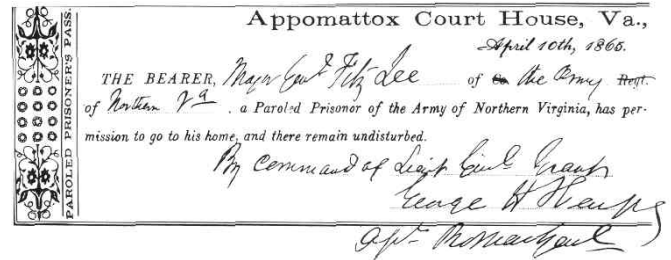 PAROLED PRISONER'S PASS.
Appomattox Court House, Va.,
April 10th, 1865.
THE BEARER, Major Genl Fitz Lee of Co. the Army Regt.
of Northern Va, a Paroled Prisonor of the Army of Northern Virginia, has per-
mission to go to his home, and there remain undisturbed.
By command of Lieut Genl Grant
George H